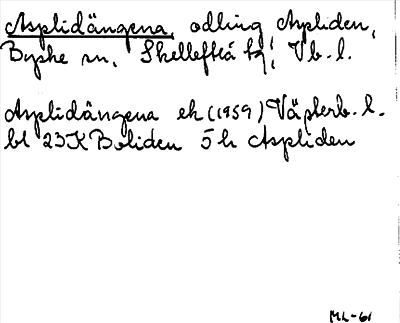 Asplidängena, odling Aspliden,
Byske sn, Skellefteå tg, Vb. l.
Asplidängena ek (1959) Västerb. l.
bl 23K Boliden 5 h Aspliden
ML-61